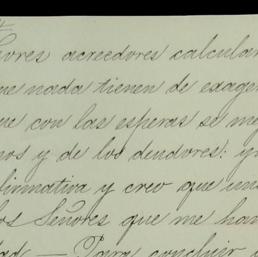 ores acreedores calcular
ue nada tienen de exage
ue con las esperas se me
nos y de los deudores: y
firmativa y creo que un
los Señores que me han
dad — Para concluir